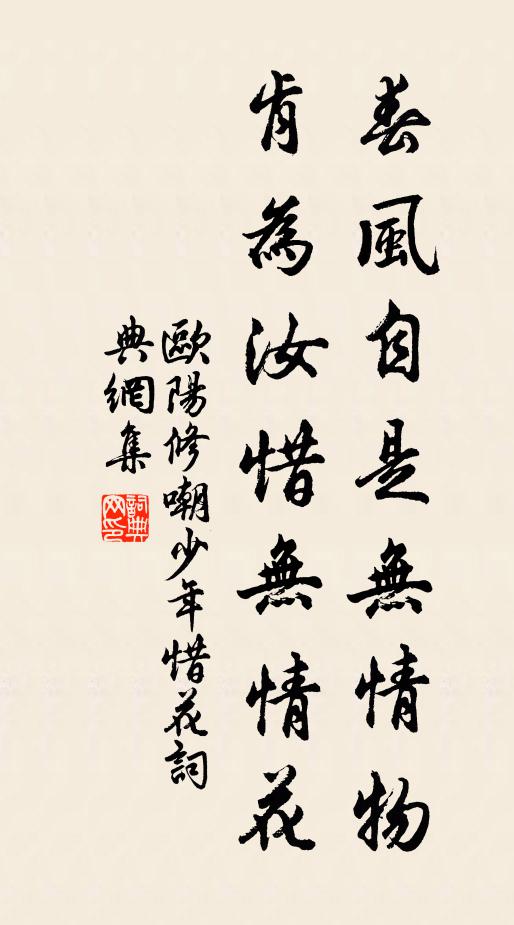 春風自是無情物
肯為汝惜無情花
歐陽修嘲少年惜花詞
典網集
詞典
网印